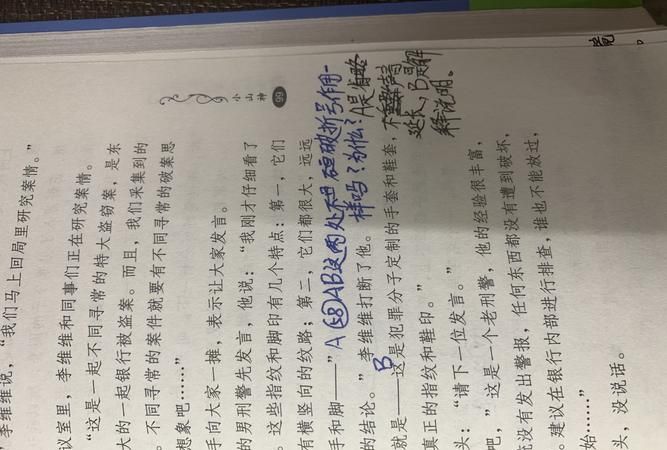 李维维说，“我们马上回局里研究案情。”
议室里，李维维和同事们正在研究案情。
“这是一起不同寻常的特大盗窃案，是东
大的一起银行被盗案。而且，我们采集到的
。不同寻常的案件就要有不同寻常的破案思
想象吧……”
小山神
99
手向大家一摊，表示让大家发言。
的男刑警先发言，他说：“我刚才仔细看了
。这些指纹和脚印有几个特点：第一，它们
有横竖向的纹路；第二，它们都很大，远远
手和脚——”
A 58 AB这两处破折号作用一
样吗？为什么？
A是省略
声音
延长、B是解
释说明。
的结论。”李维维打断了他。
B
就是——这是犯罪分子定制的手套和鞋套，不
真正的指纹和鞋印。”
头：“请下一位发言。”
吧，”这是一个老刑警，他的经验很丰富，
统没有发出警报，任何东西都没有遭到破坏，
。建议在银行内部进行排查，谁也不能放过，
始……”
头，没说话。